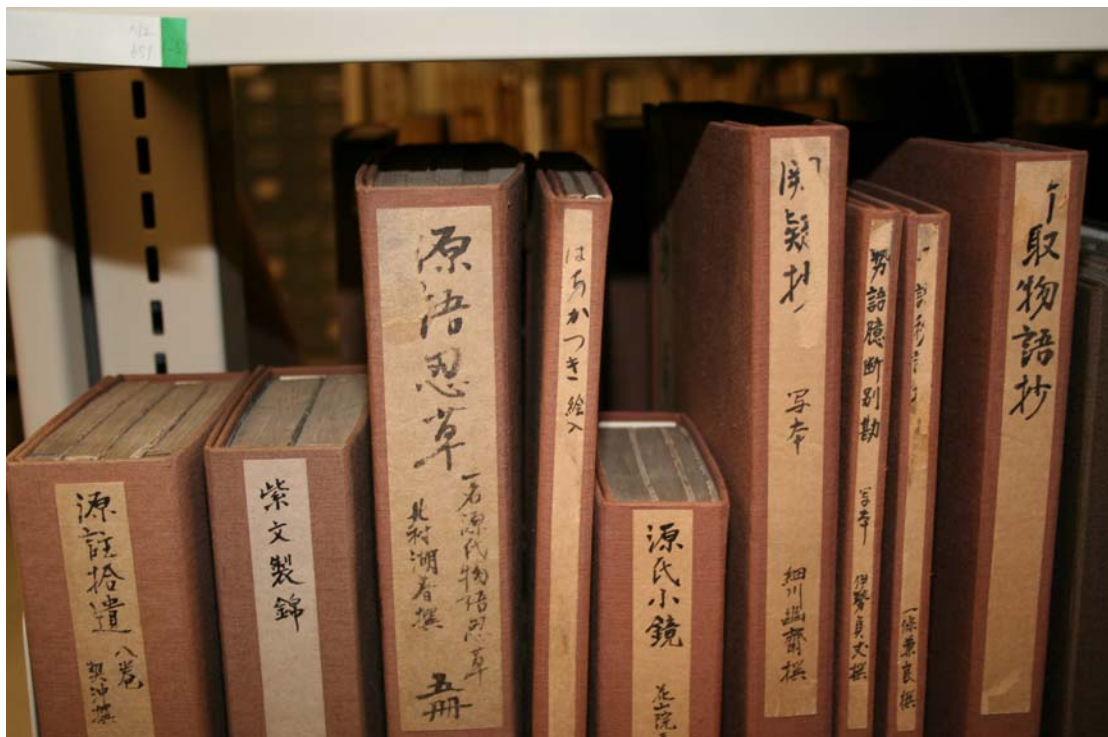 源註拾遺 八巻 契沖撰
紫文製錦
源語忍草
一名源氏物語忍草
北村湖春撰
五冊
はちかつき 絵入
源氏小鏡 花山院
疑抄 写本 細川幽齋撰
勢語臆断別勘 写本 伊勢貞丈撰
一條兼良撰
取物語抄